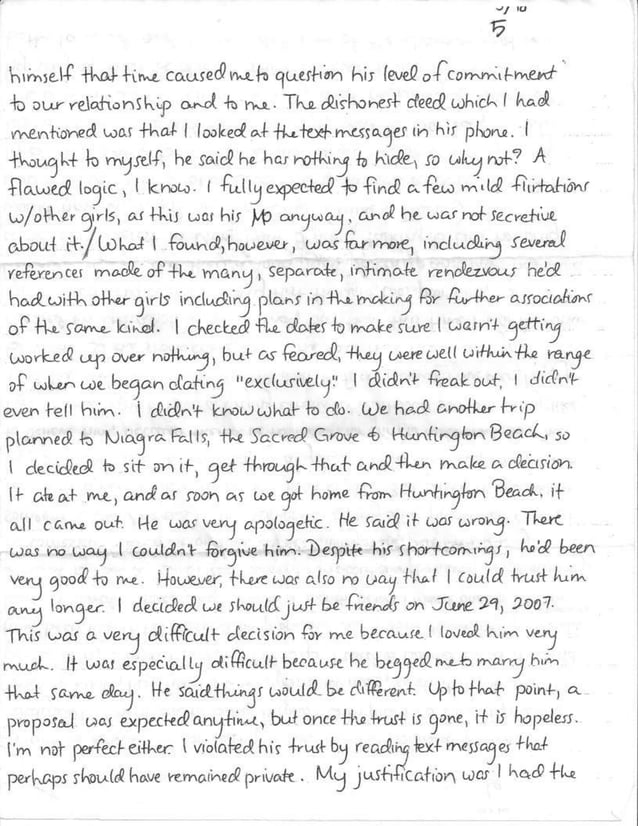 5
himself that time caused me to question his level of commitment
to our relationship and to me. The dishonest deed which I had
mentioned was that I looked at the text messages in his phone. I
thought to myself, he said he has nothing to hide, so why not? A
flawed logic, I know. I fully expected to find a few mild flirtations
w/other girls, as this was his MO anyway, and he was not secretive
about it./What I found, however, was far more, including several
references made of the many, separate, intimate rendezvous he'd
had with other girls including plans in the making for further associations
of the same kind. I checked the dates to make sure I wasn't getting
worked up over nothing, but as feared, they were well within the range
of when we began dating "exclusively." I didn't freak out, I didn't
even tell him. I didn't know what to do. We had another trip
planned to Niagra Falls, the Sacred Grove & Huntington Beach, so
I decided to sit on it, get through that and then make a decision.
It ate at me, and as soon as we got home from Huntington Beach, it
all came out. He was very apologetic. He said it was wrong. There
was no way I couldn't forgive him. Despite his shortcomings, he'd been
very good to me. However, there was also no way that I could trust him
any longer. I decided we should just be friends on June 29, 2007.
This was a very difficult decision for me because I loved him very
much. It was especially difficult because he begged me to marry him
that same day. He said things would be different. Up to that point, a
proposal was expected anytime, but once the trust is gone, it is hopeless.
I'm not perfect either. I violated his trust by reading text messages that
perhaps should have remained private. My justification was I had the